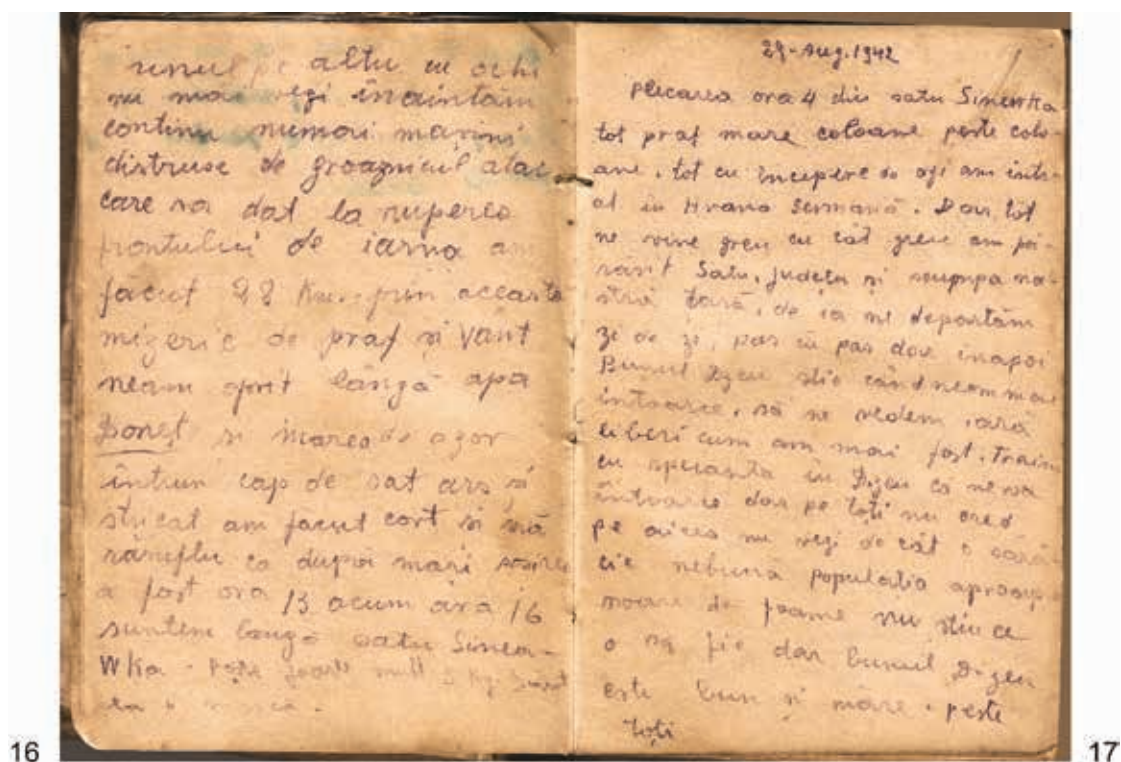 unul pe altu cu ochi
nu mai vezi înaintăm
continu numai mașini
distruse de groaznicul atac
care sa dat la ruperea
frontului de iarna am
făcut 28 Km. prin aceasta
mizerie de praf și vânt
neam oprit lângă apa
Doneț și marea de azov
întrun cap de sat ars și
stricat am făcut cort și mă
răsuflu ca după marș sosirea
a fost ora 13 acum ora 16
suntem langă satu Sinea-
Wka - foarte mult
16
29-Aug.1942
plecarea ora 4 din satu Sinewka
tot praf mare coloane peste colo-
ane, tot cu începere de azi am intr-
at în Hrana Germană. Dar tot
ne vine greu cu cât greu am pă-
răsit Satu, județu și scumpa no-
stră țară, de ia ne departăm
zi de zi, pas cu pas dar înapoi
Bunul Dzeu stie când neom mai
întoarce, să ne vedem iară
liberi cum am mai fost. Traim
cu speranta în Dzeu ca neva
întoarce dar pe toți nu cred
pe aicea nu vezi de cât o sără-
cie nebună populatia aproape
moare de foame nu stiu ce
o să fie dar bunul D-zeu
este bun și mare peste
toți
17